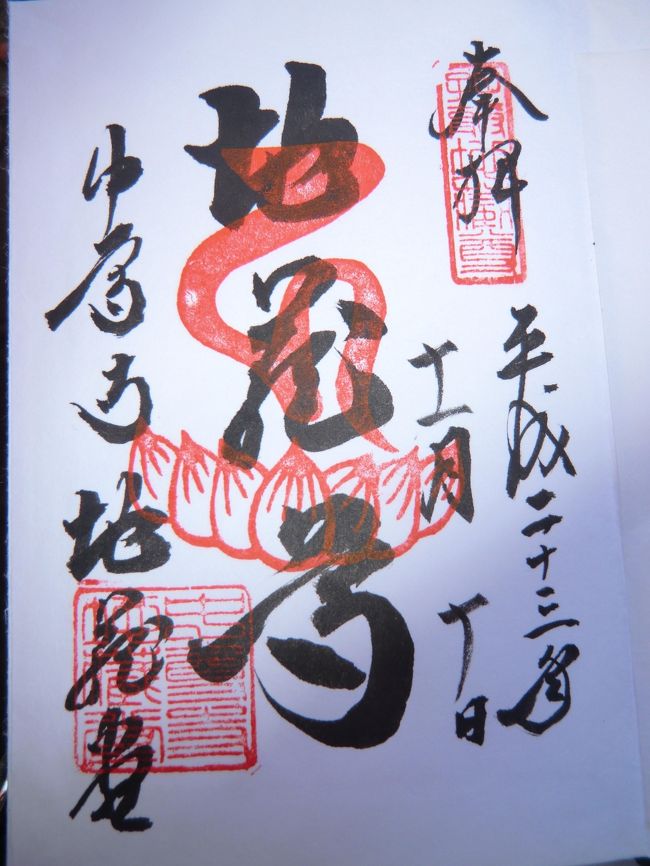 奉拝
平成二十三年
十一月十日
地蔵尊
中尊寺地蔵堂